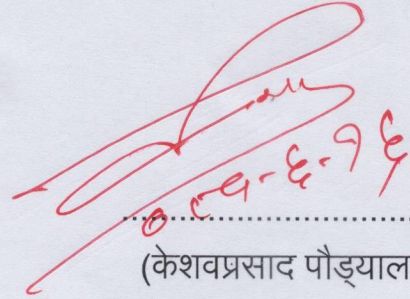 ०८१-६-१६
(केशवप्रसाद पौड्याल